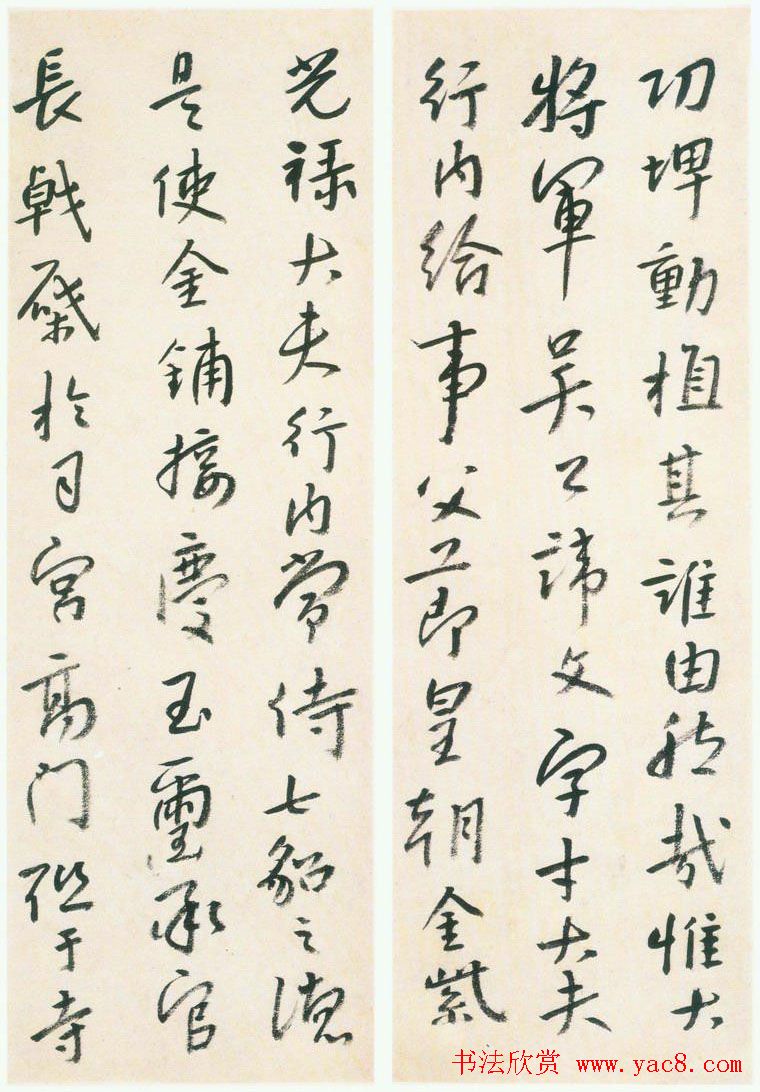 功埤動植其誰由然哉惟大
將軍吳公諱文字才大夫
行內給事父即皇朝金紫
光祿大夫行內常侍七貂之德
是使金鋪接慶玉璽承官
長戟於月宮高門于寺
书法欣赏 www.yac8.com